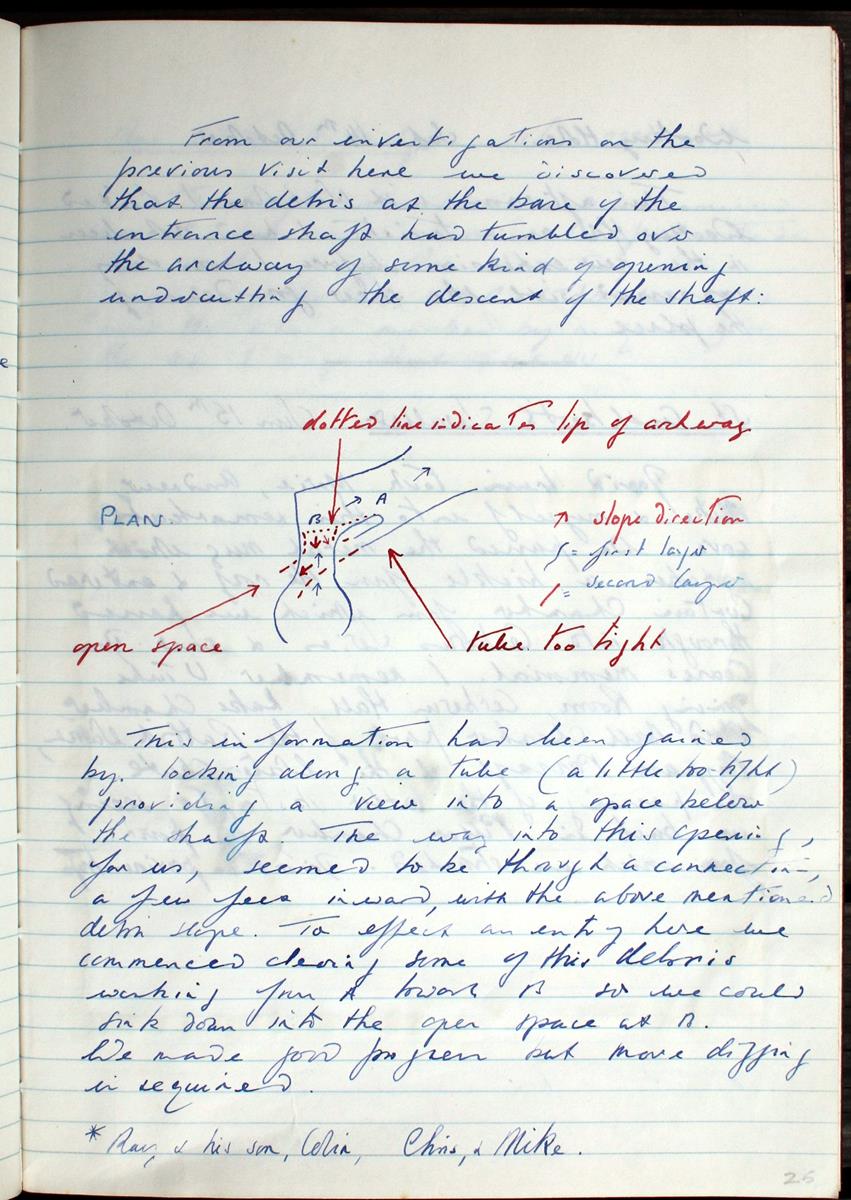 From our investigations on the
previous visit here we discovered
that the debris at the base of the
entrance shaft had tumbled over
the archway of some kind of opening
undercutting the descent of the shaft:
dotted line indicates lip of archway
PLAN.
B
A
↗ slope direction
= first layer
= second layer
open space
tube too tight
This information had been gained
by looking along a tube (a little too tight)
providing a view into a space below
the shaft. The way into this opening,
for us, seemed to be through a connection,
a few feet inward, with the above mentioned
debris slope. To effect an entry here we
commenced clearing some of this debris
working from A towards B so we could
sink down into the open space at B.
We made good progress but more digging
is required.
* Ray, & his son, Colin, Chris, & Mike.
25